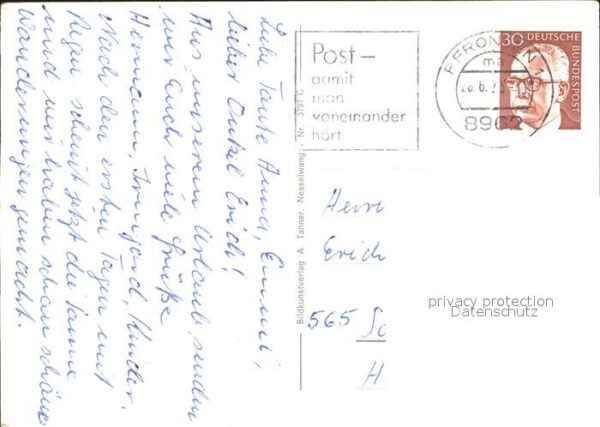 Liebe Tante Anna, Emmi,
lieber Onkel Erich!
Aus unserem Urlaub senden
wir Euch viele Grüße
Hermann, Irmgard, Kinder.
Nach den ersten Tagen mit
Regen scheint jetzt die Sonne
und wir haben schon schöne
Wanderungen gemacht.
Bildkunstverlag A. Tanner, Nesselwang, Nr. 9797 C
Post –
damit
man
voneinander
hört
PFRONTEN 1
ma
8962
30 DEUTSCHE
BUNDESPOST
Herrn
Erich
565 So
H
privacy protection
Datenschutz